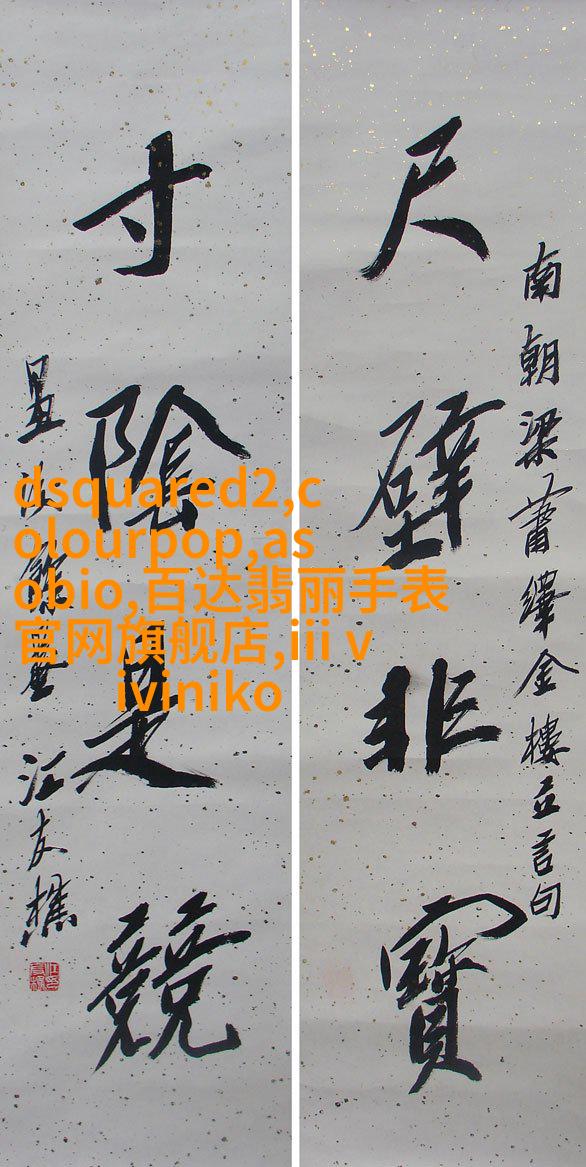 南朝梁蕭繹金樓立言句
尺璧非寶
寸陰是競
汪友樵
dsquared2,c
olourpop,as
obio,百达翡丽手表
官网旗舰店,iii v
iviniko